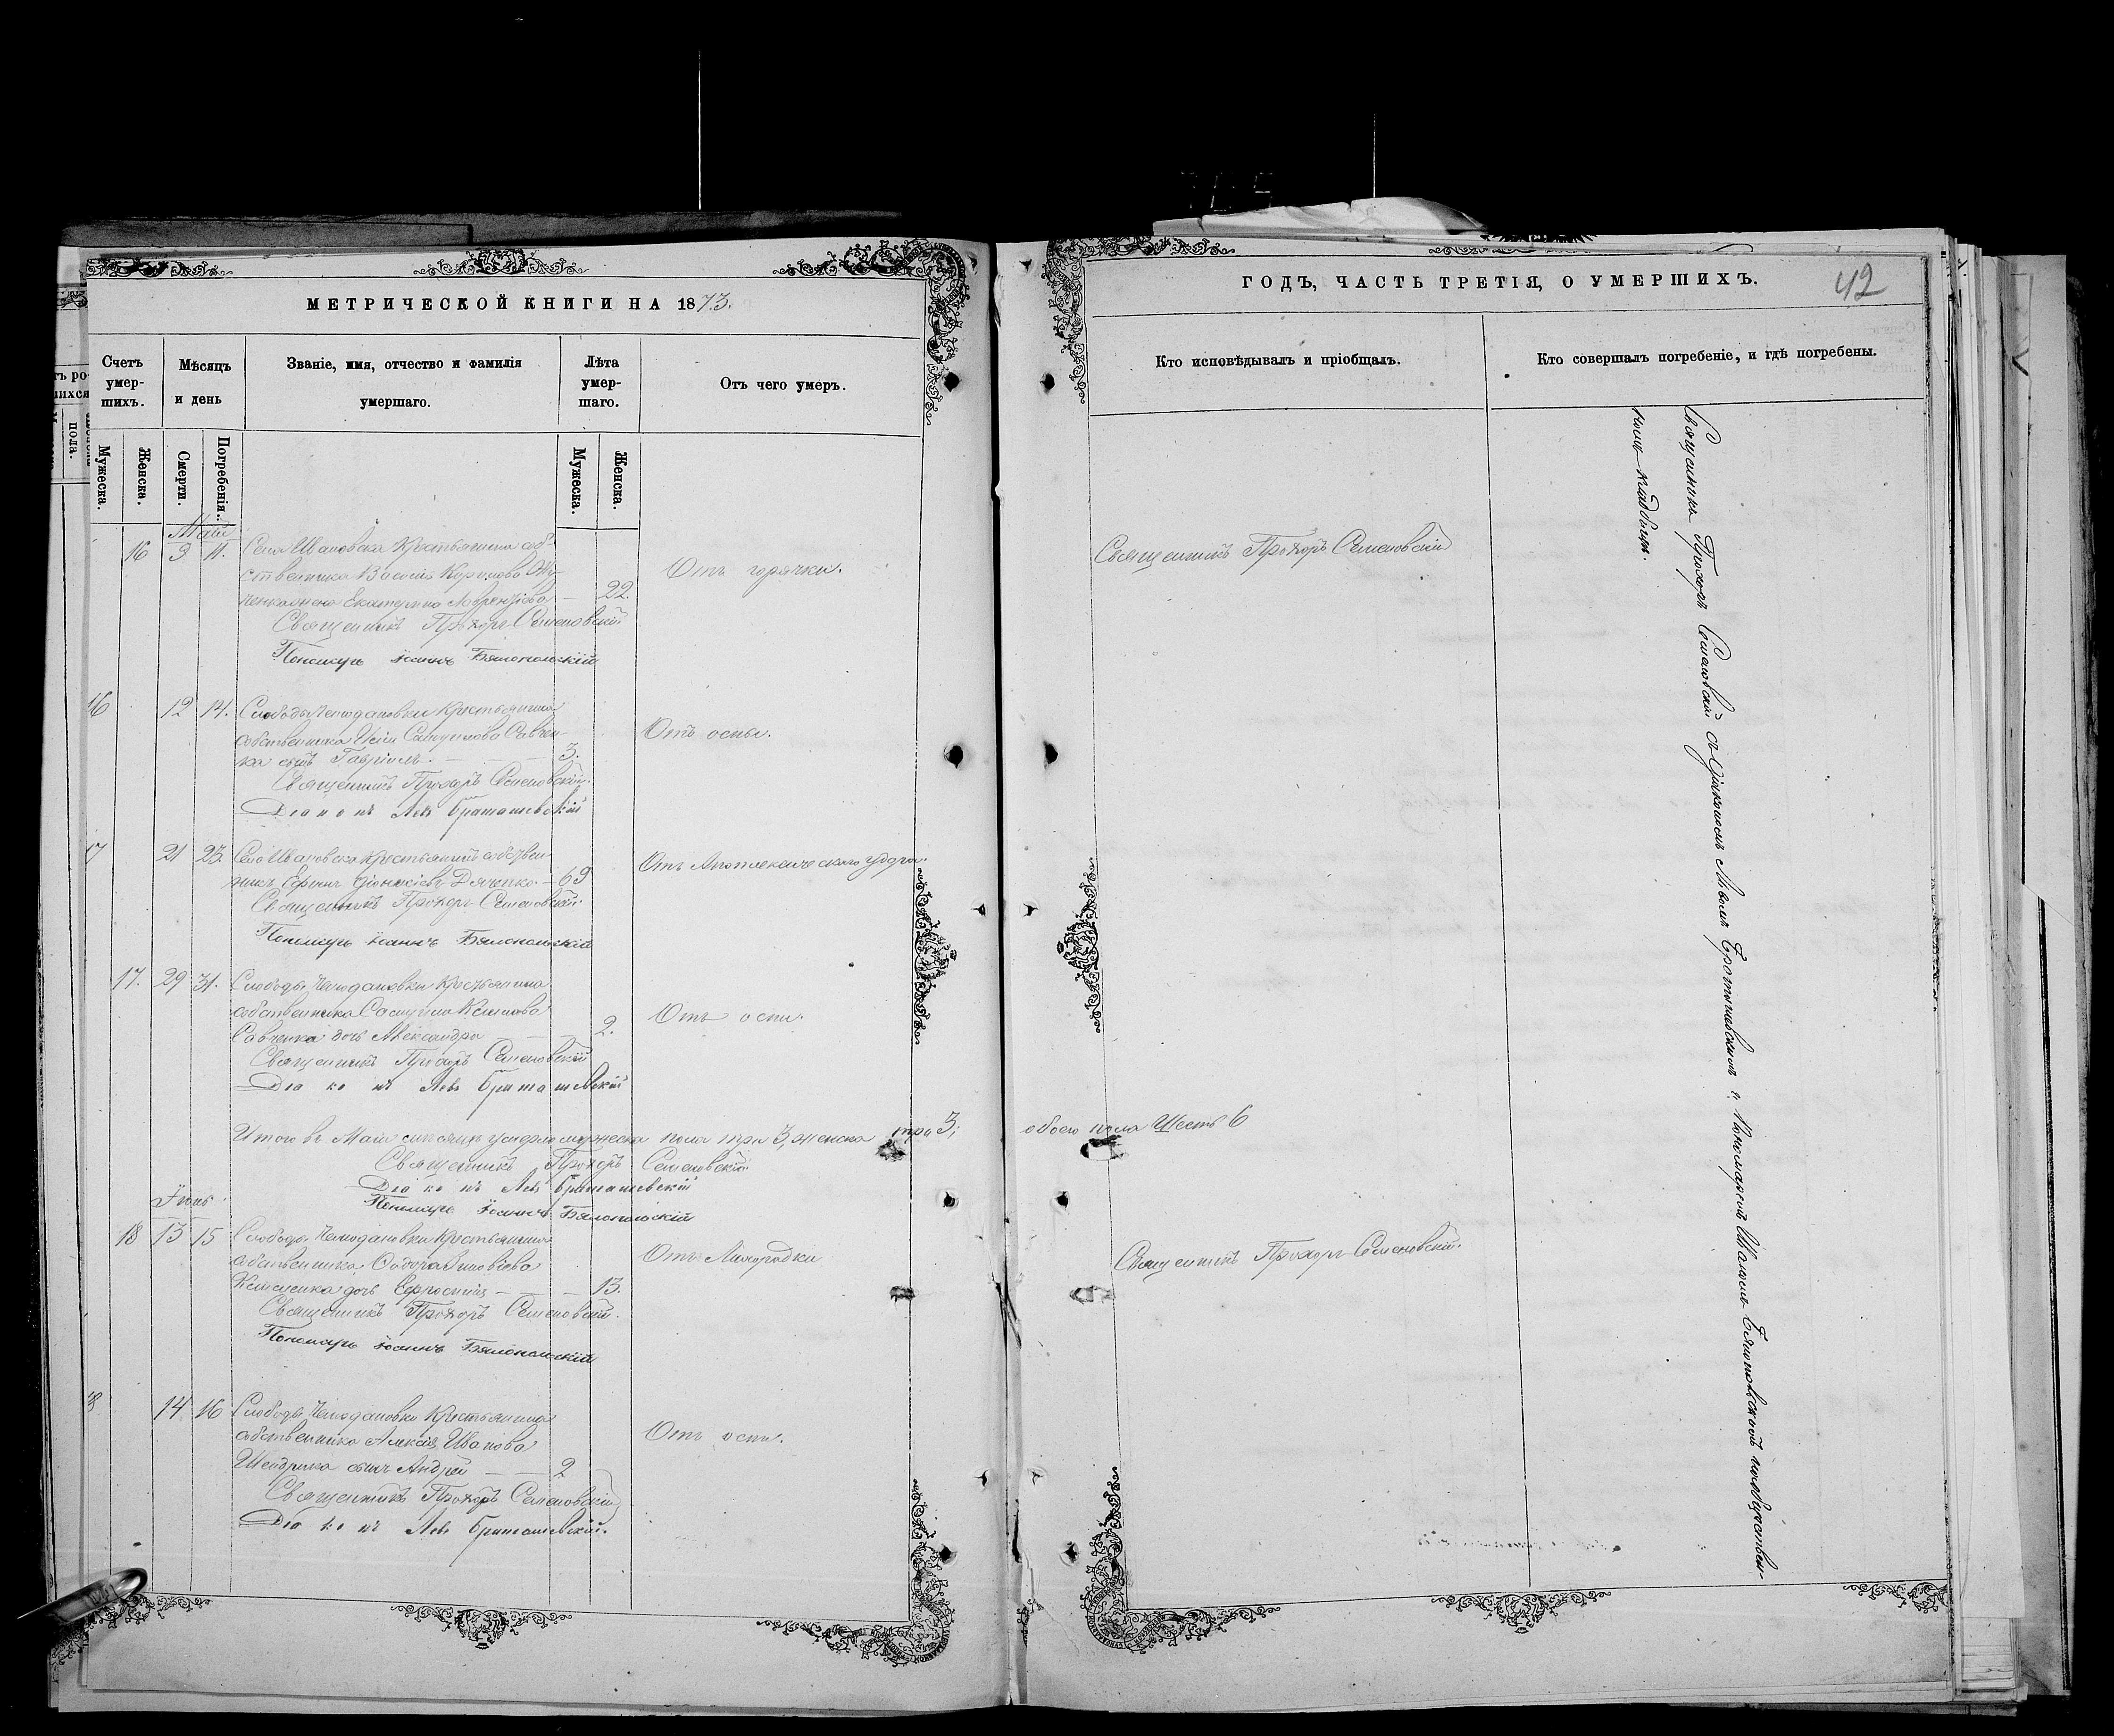 МЕТРИЧЕСКОЙ КНИГИ НА 1873.
Счетъ умер-шихъ.
Мѣсяцъ и день
Званіе, имя, отчество и фамилія умершаго.
Лѣта умер-шаго.
Отъ чего умеръ.
Мужеска.
Женска.
Смерти.
Погребенія.
Мужеска.
Женска.
Май
16 9 11. Села Ивановка Крестьянина соб-
ственника Василія Карпова
жена Екатерина 22. Отъ горячки.
Священникъ Прохоръ Семеновскій
Пономарь Іоаннъ Бялопольскій
16 12 14. Слободы Чемодановки Крестьянина
собственника Савчен-
ка сынъ Гавріилъ. 3. Отъ оспы.
Священникъ Прохоръ Семеновскій.
Діаконъ Левъ Браташевскій
17 21 23. Села Ивановка Крестьянинъ собствен-
никъ Діонисіевъ Дяченко 69 Отъ Апоплексическаго удара.
Священникъ Прохоръ Семеновскій.
Пономарь Іоаннъ Бялопольскій
17. 29 31. Слободы Чемодановки Крестьянина
собственника
Савченка дочь Александра 2. Отъ оспы.
Священникъ Прохоръ Семеновскій
Діаконъ Левъ Браташевскій
Итого въ Маѣ мѣсяцѣ умерло мужеска пола три 3, женска три 3;
Священникъ Прохоръ Семеновскій
Діаконъ Левъ Браташевскій
Пономарь Іоаннъ Бялопольскій
Іюнь.
18 13 15 Слободы Чемодановки Крестьянина
собственника
дочь Ефросинія 13. Отъ Лихорадки
Священникъ Прохоръ Семеновскій.
Пономарь Іоаннъ Бялопольскій
18 14 16 Слободы Чемодановки Крестьянина
собственника Алексія Иванова
сынъ Андрей 2 Отъ оспы.
Священникъ Прохоръ Семеновскій
Діаконъ Левъ Браташевскій.
ГОДЪ, ЧАСТЬ ТРЕТІЯ, О УМЕРШИХЪ.
42
Кто исповѣдывалъ и пріобщалъ.
Кто совершалъ погребеніе, и гдѣ погребены.
Священникъ Прохоръ Семеновскій
обоего пола Шесть 6
Священникъ Прохоръ Семеновскій.
Священникъ Прохоръ Семеновскій съ Діакономъ Львомъ Браташевскимъ и Пономаремъ Иваномъ Бялопольскимъ на обществен-
номъ кладбищѣ.